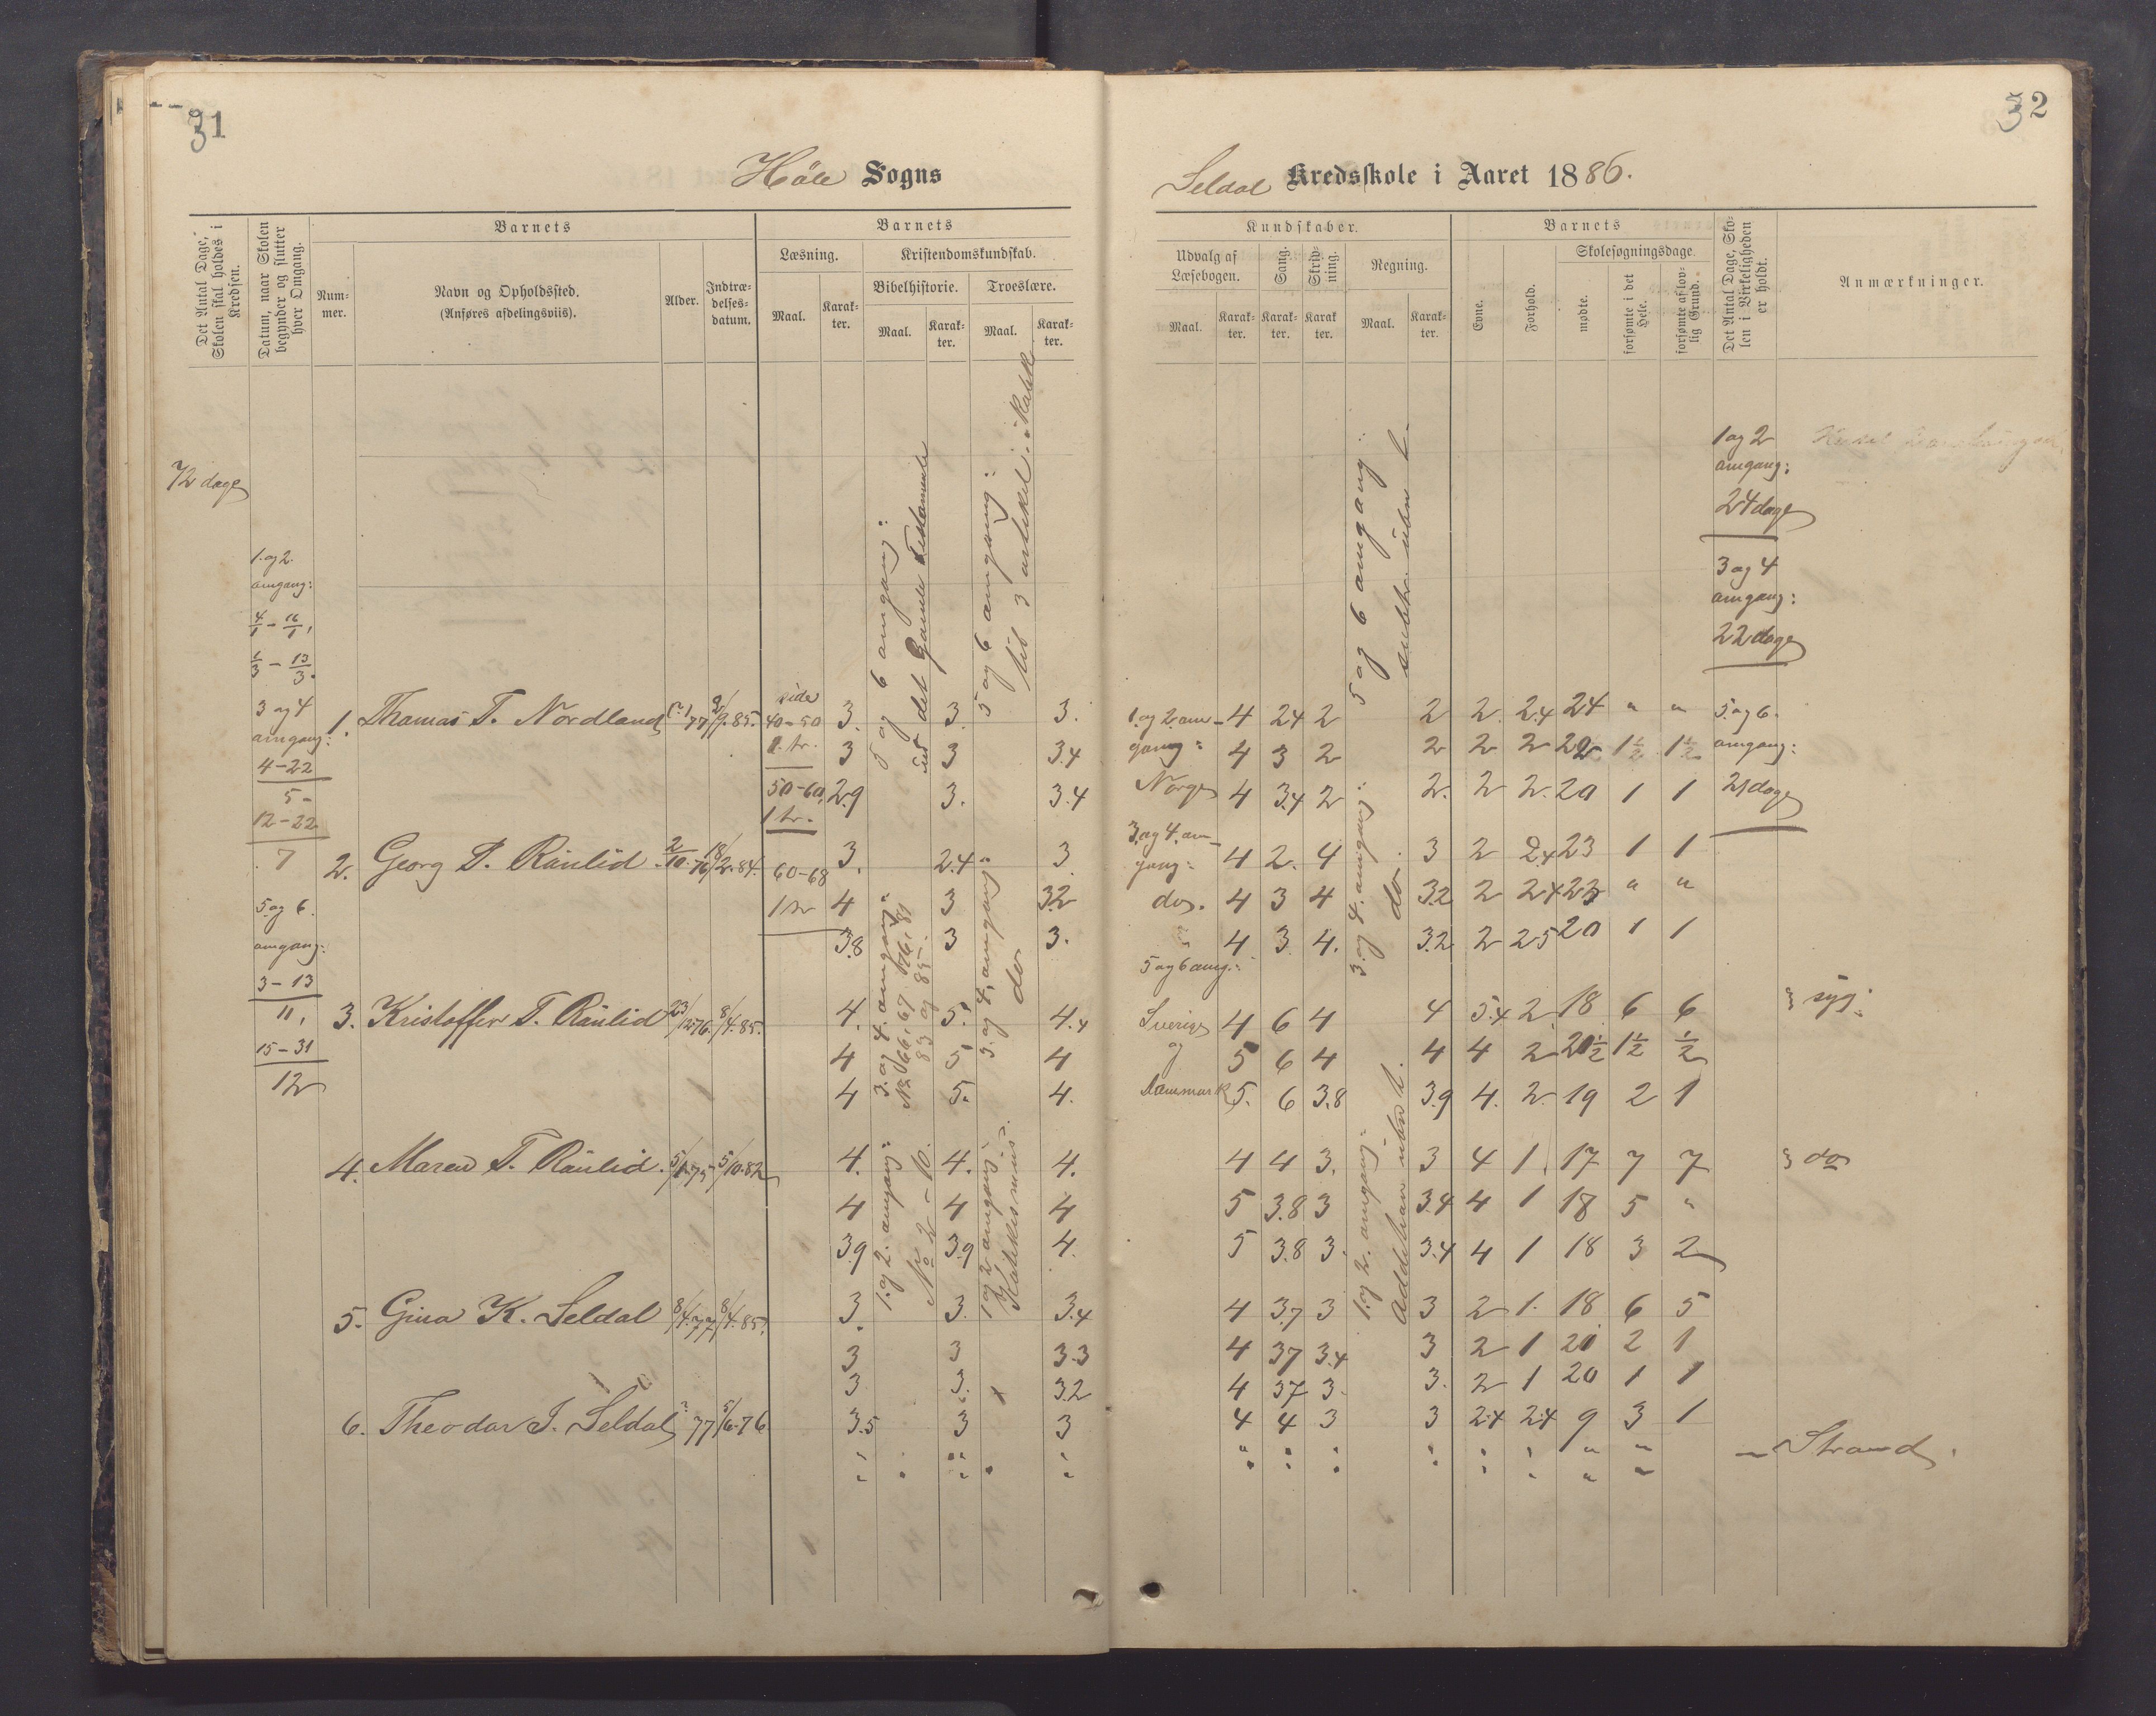 31
Höle Sogns
Det Antal Dage, Skolen skal holdes i Kredsen.
Datum, naar Skolen begynder og slutter hver Omgang.
Barnets
Num-
mer.
Navn og Opholdssted.
(Anføres afdelingsviis).
Alder.
Indtræ-
delses-
datum.
Barnets
Læsning.
Maal.
Karak-
ter.
Kristendomskundskab.
Bibelhistorie.
Maal.
Karak-
ter.
Troeslære.
Maal.
Karak-
ter.
72 dage
1. og 2.
omgang:
4/1 - 16/1,
1/3 - 13/3.
3 og 4
omgang:
4-22
5-
12-22
7
5. og 6.
omgang:
3-13
11,
15-31
12
side
40-50
1. tr.
50-60,
1 tr.
60-68
1 tr
5 og 6 omgang:
ud det Gamle Testamente
3. og 4. omgang:
No 66, 67, 76, 81
83 og 85.
1. og 2. omgang:
No 2 - 10.
5 og 6 omgang:
til 3 artikel i Katek.
3. og 4, omgang
do
1 og 2 omgang:
Katekismus.
1. Thomas T. Nordland ?/1 77 2/9. 85. 3. 3. 3.
3 3 3.4
2.9 3. 3.4
2. Georg T. Raulid 2/10. 76 18/2. 84. 3. 2.4 3.
4 3 3.2
3.8 3 3.
3. Kristoffer T. Raulid 23/12 76. 8/4. 85. 4. 5. 4.4
4 5 4
4 5. 4.
4. Maren T. Raulid. 5/1. 75 5/10. 82 4. 4. 4.
4 4 4
3.9 3.9 4.
5. Gina K. Seldal 8/4. 77 8/4. 85. 3. 3. 3.4
3 3 3.3
3 3. 3.2
6. Theodor I. Seldal ? 77 5/6. 76 3.5 3 3
32
Seldal Kredsskole i Aaret 1886.
Kundskaber.
Udvalg af
Læsebogen.
Maal.
Karak-
ter.
Sang.
Karak-
ter.
Skriv-
ning.
Karak
ter.
Regning.
Maal.
Karak-
ter.
Barnets
Evne.
Forhold.
Skolesøgningsdage.
mødte.
forsømte i det Hele.
forsømte af lov-
lig Grund.
Det Antal Dage, Sko-
len i Virkeligheden
er holdt.
Anmærkninger.
1 og 2
omgang:
24 dage
3 og 4
omgang:
22 dage
5. og 6.
omgang:
21 dage
1. og 2 om-
gang:
Norge
3. og 4. om-
gang:
do.
5 og 6 omg.:
Sverige
og
Danmark
5 og 6 omgang:
subtr. uben b.
3. og 4. omgang:
do.
1. og 2. omgang:
Addition uben b.
4 2.4 2 2 2. 2.4 24 " "
4 3 2 2 2 2 22 1 1/2 1 1/2
4 3.4 2 2. 2 2. 20 1 1
4 2. 4 3 2 2.4 23 1 1
4 3 4 3.2 2 2.4 23 " "
4 3. 4. 3.2 2 2.5 20 1 1
4 6 4 4 5.4 2 18 6 6 syg:
5 6 4 4 4 2 20 1/2 1 1/2 1/2
5. 6 3.8 3.9 4. 2. 19 2 1
4 4 3. 3 4 1. 17 7 7 do
5 3.8 3 3.4 4 1 18 5 "
5 3.8 3. 3.4 4 1 18 3 2
4 3.7 3 3 2 1. 18 6 5
4 3.7 3.4 3 2 1 20 2 1
4 3.7 3. 3. 2 1 20 1 1
4 4 3 3 2.4 2.4 9 3 1
Strand.